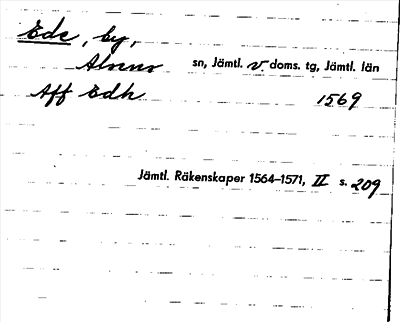 Ede, by,
Alsens sn, Jämtl. v doms. tg, Jämtl. län
Aff Edh 1569
Jämtl. Räkenskaper 1564–1571, II s. 209